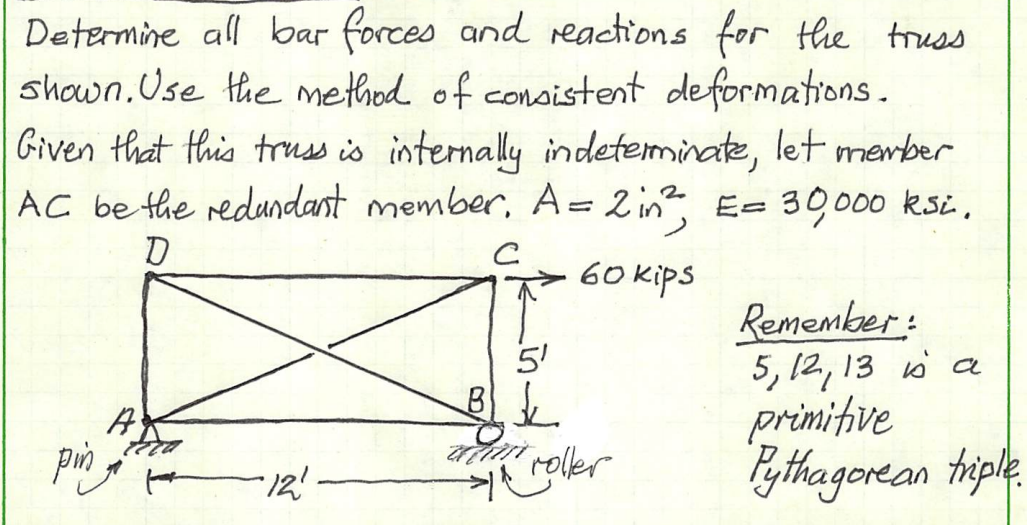 Determine all bar forces and reactions for the truss
shown. Use the method of consistent deformations.
Given that this truss is internally indeterminate, let member
AC be the redundant member. A = 2 in², E = 30,000 ksi.
D
C
60 kips
5'
A
B
pin
roller
12'
Remember:
5, 12, 13 is a
primitive
Pythagorean triple.